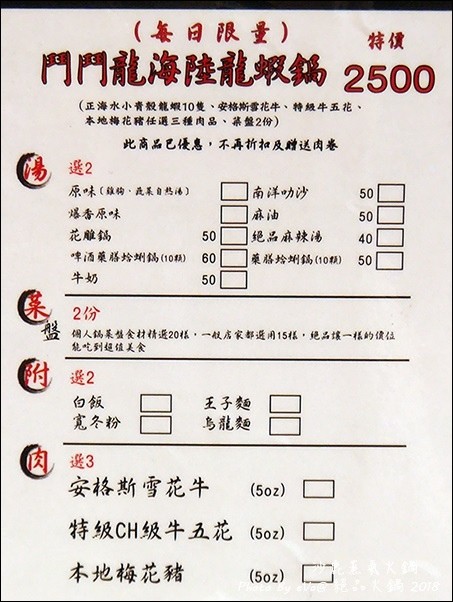 (每日限量)
鬥鬥龍海陸龍蝦鍋 特價 2500
(正海水小青殼龍蝦10隻、安格斯雪花牛、特級牛五花、
本地梅花豬任選三種肉品、菜盤2份)
此商品已優惠,不再折扣及贈送肉卷
湯 選2
原味(雞狗、蔬菜自熱湯) 南洋叻沙 50
爆香原味 麻油 50
花雕鍋 50 絕品麻辣湯 40
啤酒藥膳蛤蜊鍋(10顆) 60 藥膳蛤蜊鍋(10顆) 50
牛奶 50
菜盤 2份
個人鍋菜盤食材精選20樣,一般店家都選用15樣,絕品讓一樣的價位
能吃到超值美食
附 選2
白飯 王子麵
寬冬粉 烏龍麵
肉 選3
安格斯雪花牛 (5oz)
特級CH級牛五花 (5oz)
本地梅花豬 (5oz)
Photo by eve@絕品火鍋 2018